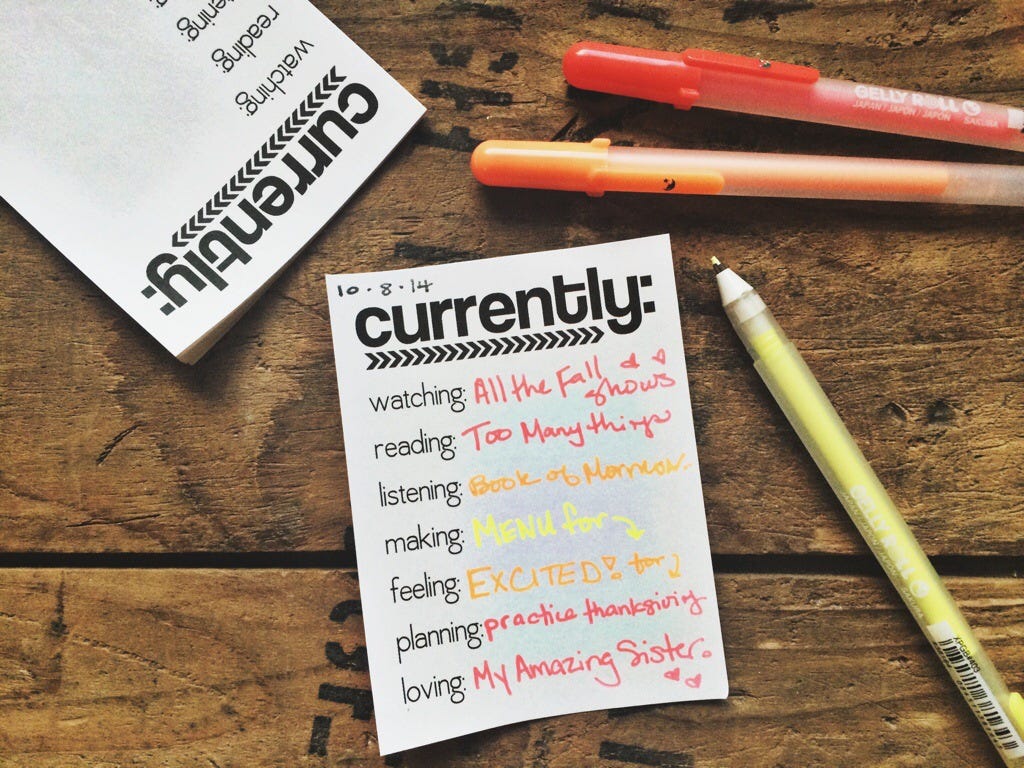 currently:
watching:
reading:
GELLY ROLL
JAPAN / JAPON / JAPON SAKURA
10·8·14
currently:
watching: All the Fall shows
reading: Too Many things
listening: Book of Mormon.
making: MENU for
feeling: EXCITED! for
planning: practice thanksgiving
loving: My Amazing Sister.
GELLY ROLL